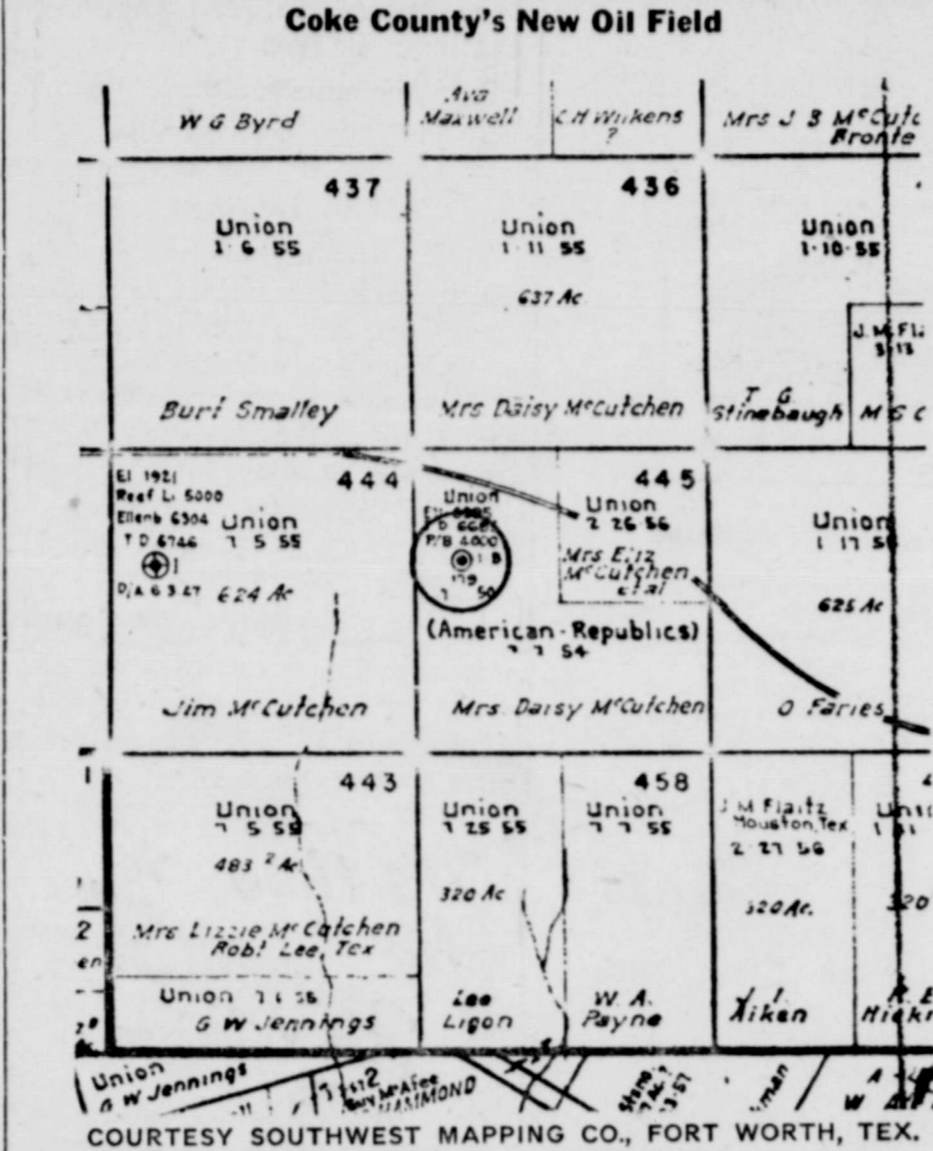 Coke County's New Oil Field
W G Byrd
Ava
Maxwell
C H Wilkens
?
Mrs J B McCutc
Bronte
437
Union
1·6 55
Burt Smalley
436
Union
1·11 55
637 Ac
Mrs Daisy McCutchen
Union
1·10·55
J. M. Fl
T G
Stinebaugh
M S C
El 1921
Reef Li 5000
Ellenb 6304
T D 6746
444
Union
7 5 55
1
624 Ac
Jim McCutchen
445
Union
P/B 4000
1 B
179
Union
2 26 56
Mrs Eliz
McCutchen
et al
(American-Republics)
7 7 54
Mrs. Daisy McCutchen
Union
625 Ac
O Faries
1
2
en
443
Union
7 5 55
483 2 Ac
Mrs Lizzie McCutchen
Robt Lee, Tex
Union
G W Jennings
Union
7 25 55
320 Ac
Lee
Ligon
458
Union
7 7 55
W. A.
Payne
J M Flaitz
Houston, Tex
2 27 56
320 Ac.
Aiken
4
Uni
320
Hickm
Union
G W Jennings
McAfee
HAMMOND
COURTESY SOUTHWEST MAPPING CO., FORT WORTH, TEX.